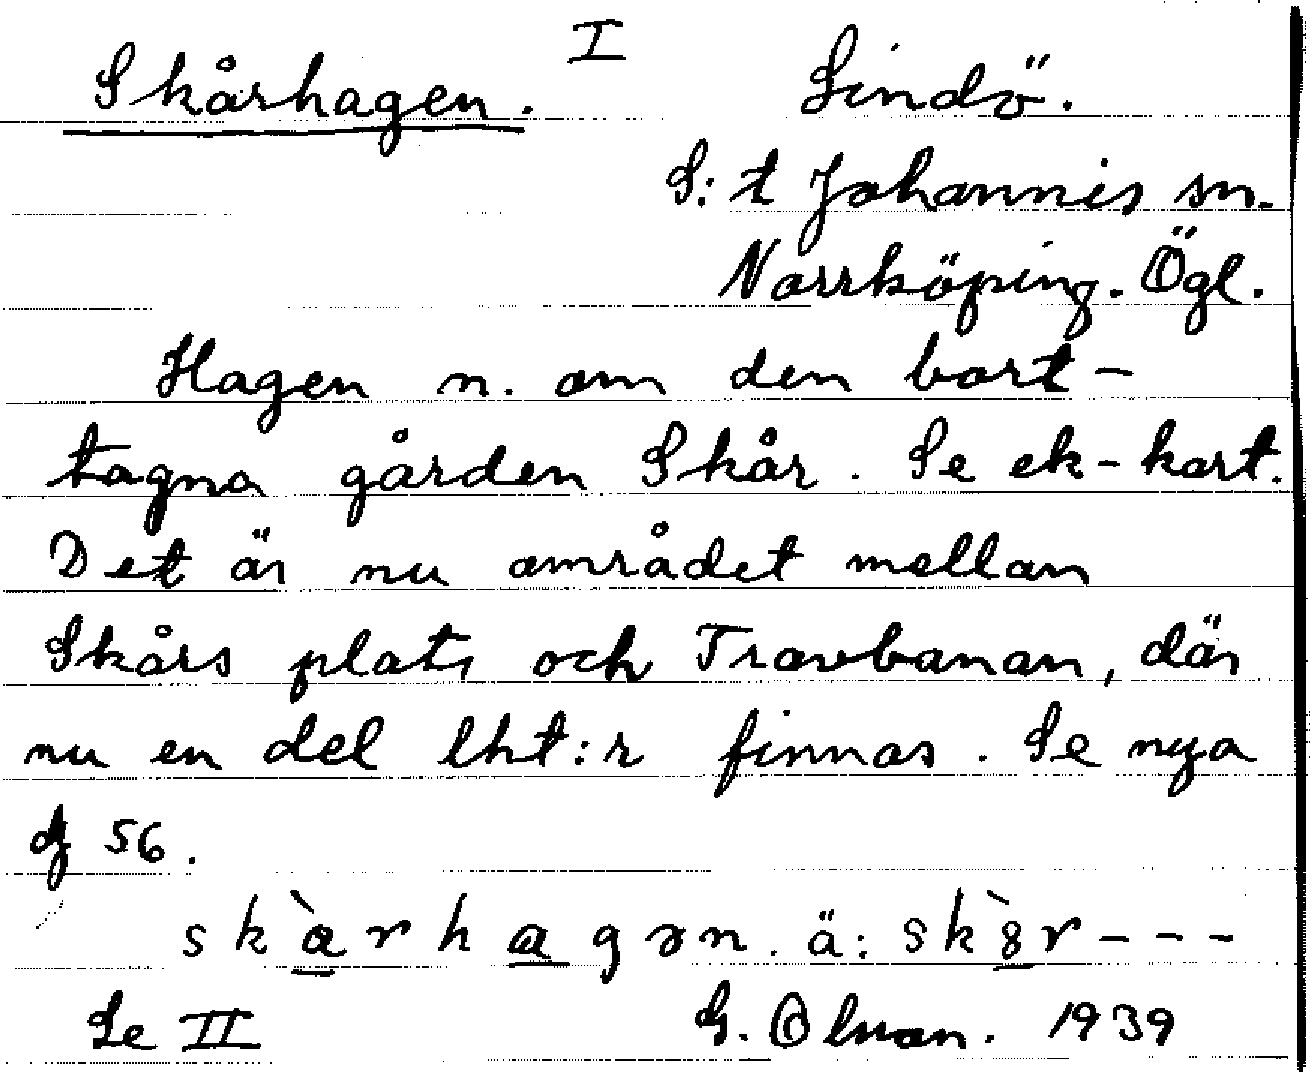 I
Skårhagen. Lindö.
S:t Johannis sn.
Norrköping. Ögl.
Hagen n. om den bort-
tagna gården Skår. Se ek-kart.
Det är nu området mellan
Skårs plats och Travbanan, där
nu en del lht:r finnas. Se nya
56.
skàrhagən. ä: sk r---
Se II G. Olsson. 1939